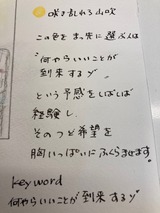 咲き乱れる山吹
この色をまっ先に選ぶ人は
"何やらいいことが
到来するゾ"
という予感をしばしば
経験し、
そのつど希望を
胸いっぱいにふくらませます。
Keyword
何やらいいことが到来するゾ